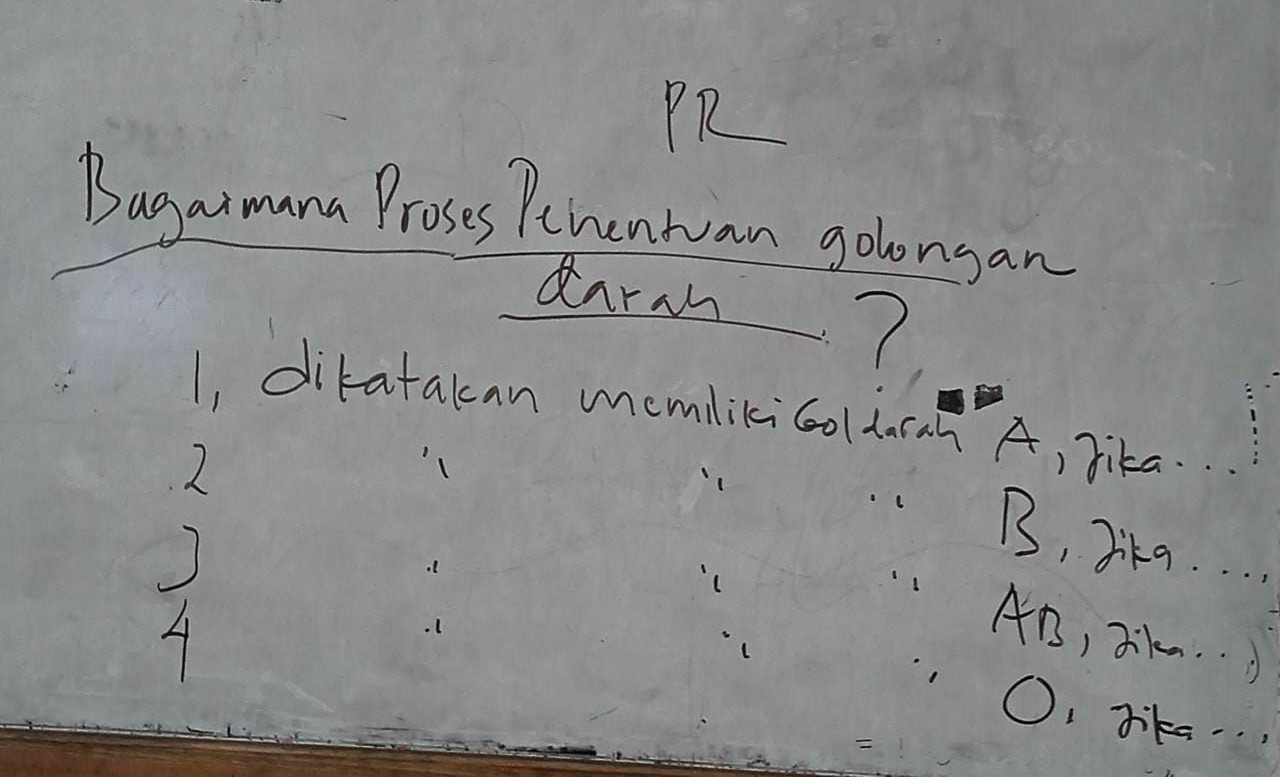 PR
Bagaimana Proses Penentuan golongan
darah ?
1, dikatakan memiliki Gol darah A, jika...
2 " " " B, jika....,
3 " " " AB, jika...)
4 " " " O, jika...,